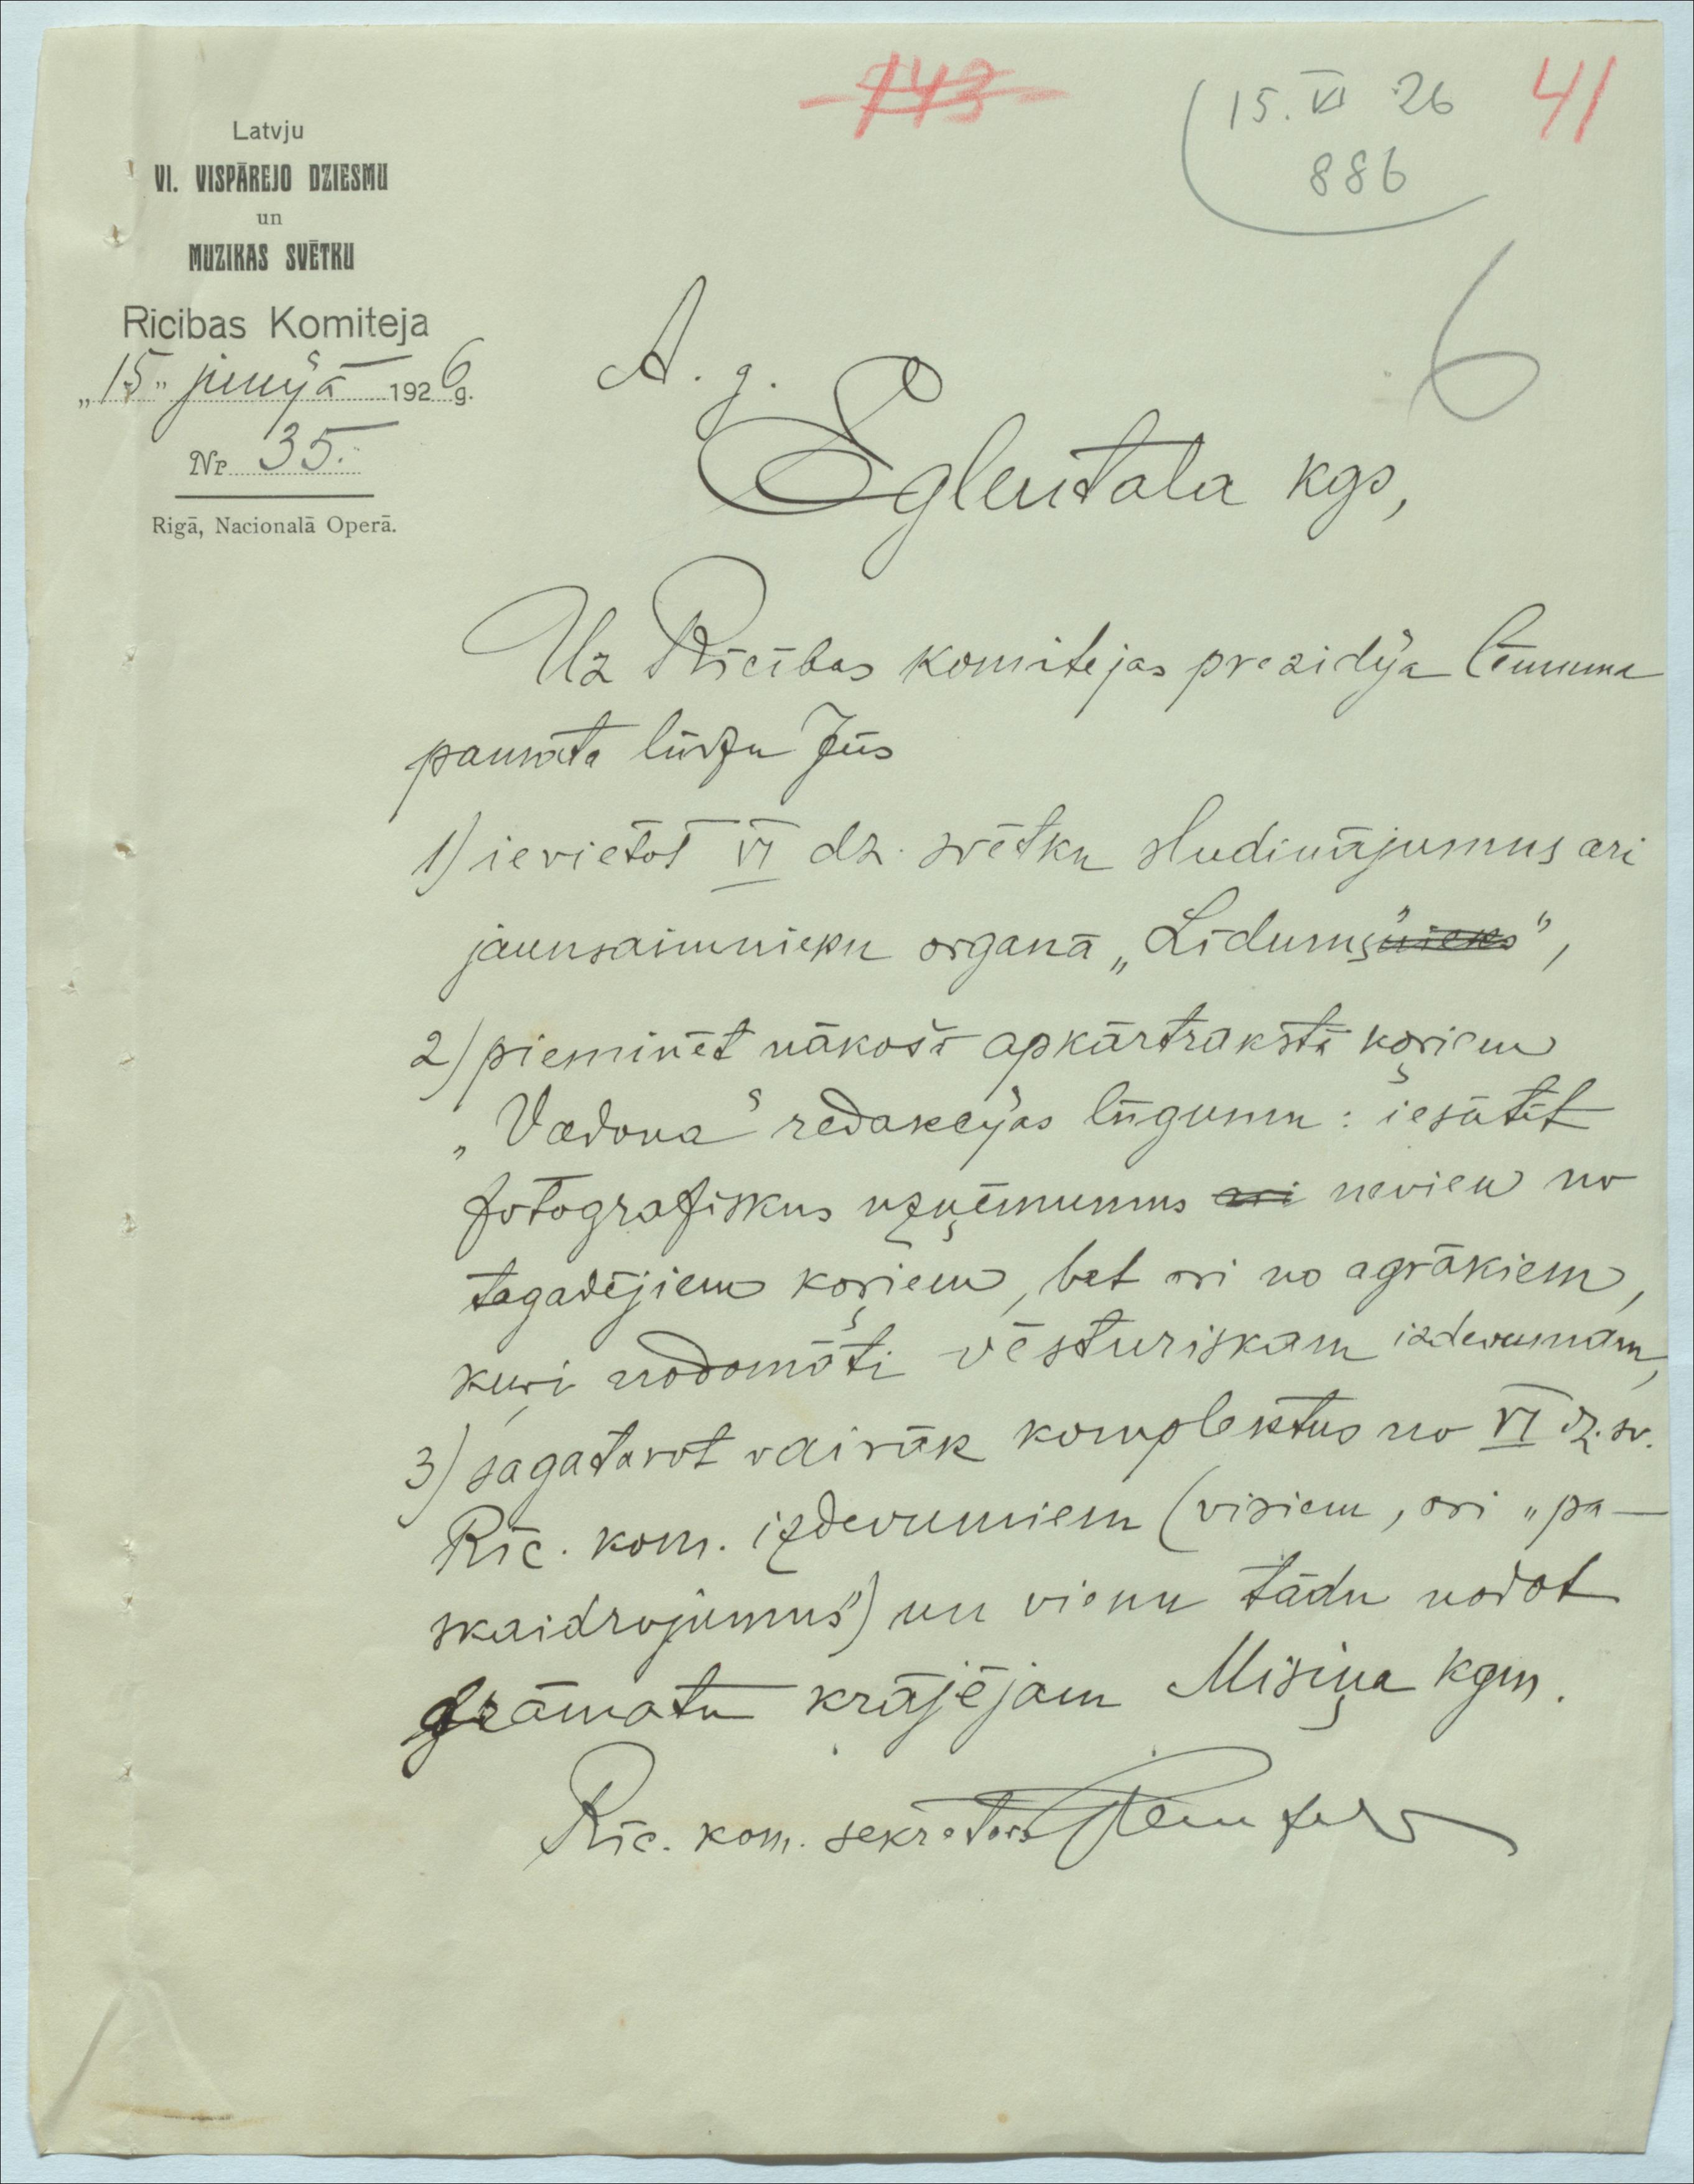 743
15. VI 26
886
41
Latvju
VI. VISPĀREJO DZIESMU
un
MUZIKAS SVĒTKU
Ricibas Komiteja
„15" junijā 1926 g.
Nr 35.
Rigā, Nacionalā Operā.
6
A. g.
Eglentala kgs,
Uz Rīcības komitejas prezidija lēmuma
pamata lūdzu Jūs
1) ievietot VI dz. svētku sludinājumus ari
jaunsaimnieku organā „Līdums"nieks",
2) pieminēt nākošā apkārtrakstā koŗiem
„Vadoņa" redakcijas lūgumu: iesūtīt
fotografiskus uzņēmumus ari nevien no
tagadējiem koŗiem, bet ari no agrākiem,
kuŗi nodomāti vēsturiskam izdevumam,
3) sagatavot vairāk komplektus no VI dz. sv.
Rīc. kom. izdevumiem (visiem, ari „pa-
skaidrojumus") un vienu tādu nodot
grāmatu krājējam Misiņa kgm.
Rīc. kom. sekretars